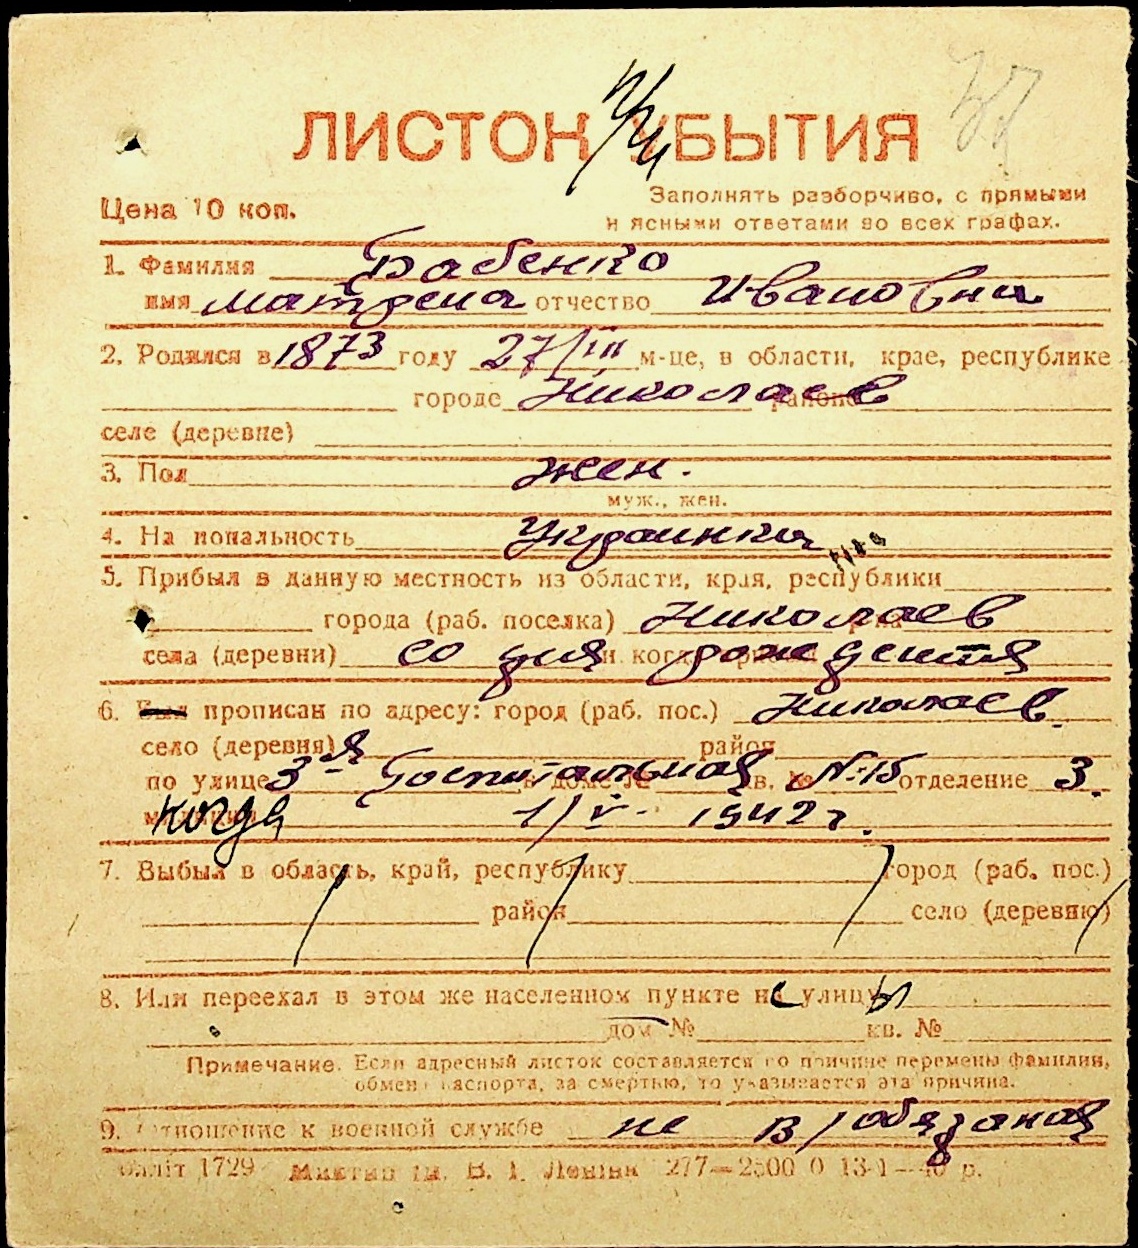 ЛИСТОК УБЫТИЯ
Цена 10 коп.
Заполнять разборчиво, с прямыми
и ясными ответами во всех графах.
1. Фамилия Бабенко
имя Матрена отчество Ивановна
2. Родился в 1873 году 27/III м-це, в области, крае, республике
городе Николаев районе
селе (деревне)
3. Пол жен.
муж., жен.
4. Национальность Украинка
5. Прибыл в данную местность из области, края, республики
города (раб. поселка) Николаев р-на
села (деревни) со дня и когда рождения
6. Был прописан по адресу: город (раб. пос.) Николаев.
село (деревня) район
по улице 3-я Госпитальная в доме № кв. № №15 отделение 3.
когда 1/V- 1942 г.
7. Выбыл в область, край, республику город (раб. пос.)
район село (деревню)
8. Или переехал в этом же населенном пункте на улицу
дом № кв. №
Примечание. Если адресный листок составляется по причине перемены фамилии,
обмена паспорта, за смертью, то указывается эта причина.
9. Отношение к военной службе не в/обязаная
1729 В. І. Леніна 277—2500 0 13-1—40 р.